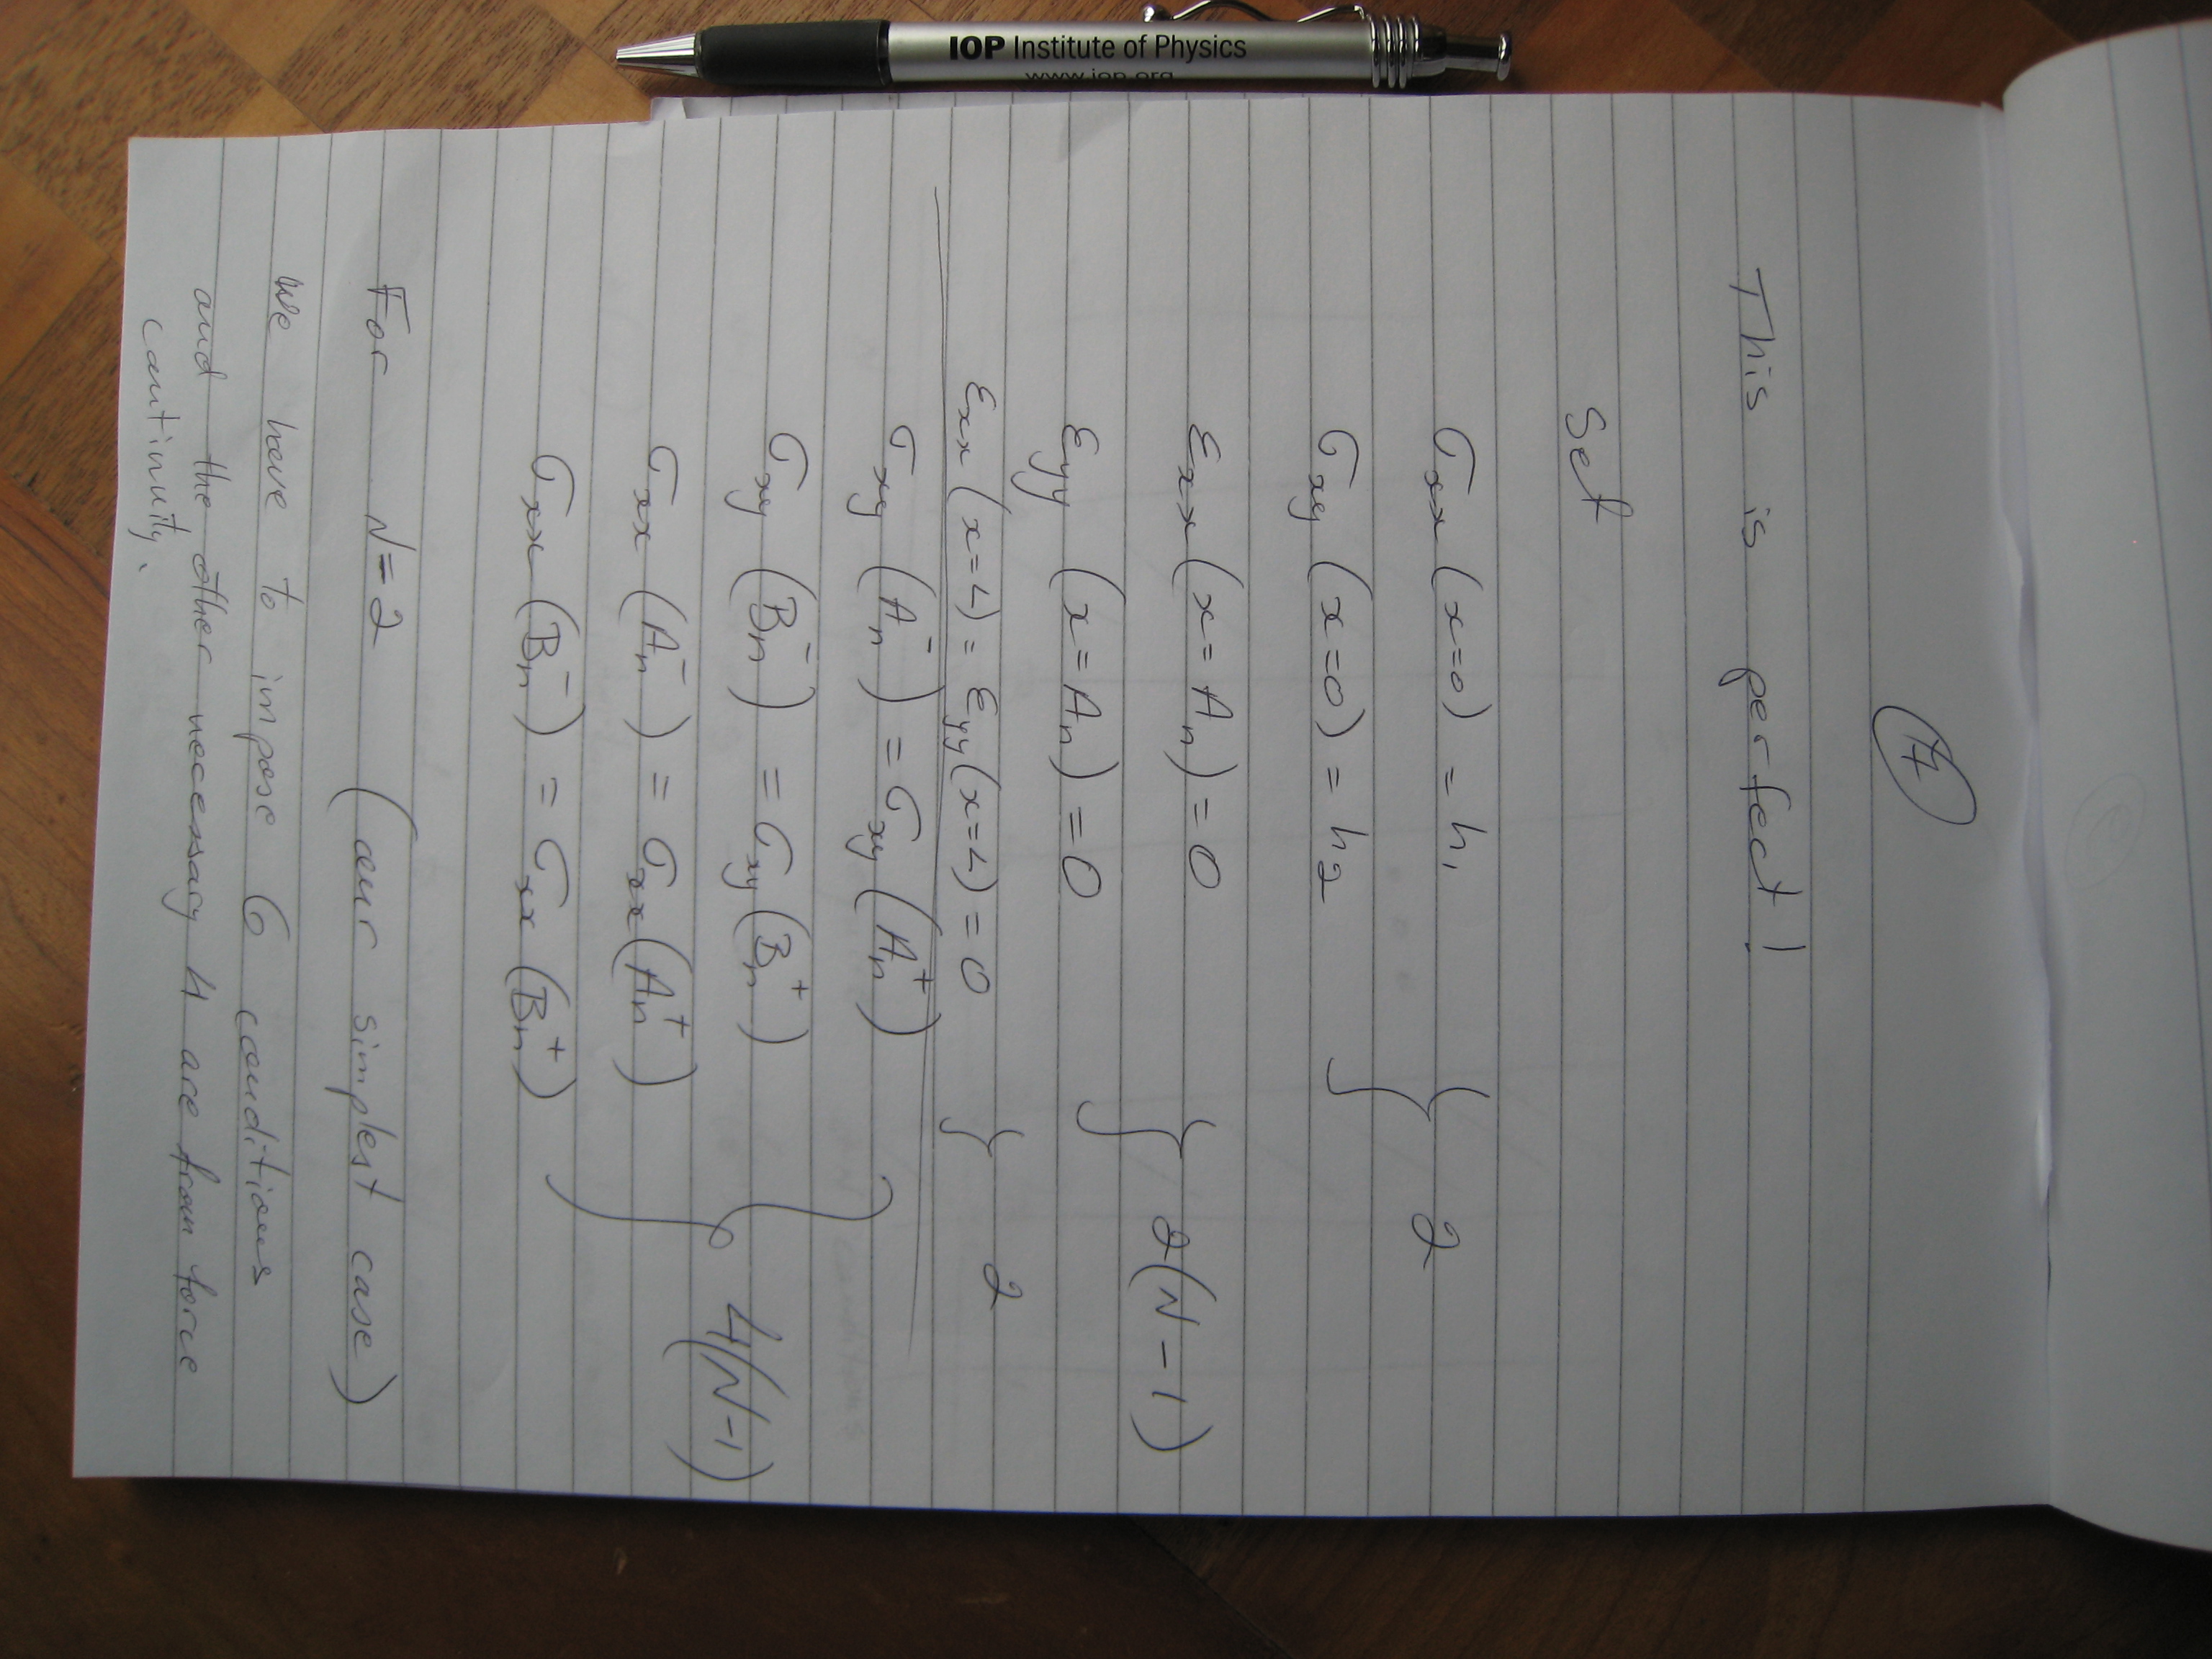 IOP Institute of Physics
www.iop.org
7
This is perfect!
Set
σxx (x=0) = h₁
σxy (x=0) = h₂ } 2
εxx (x=Aₙ) = 0
εyy (x=Aₙ) = 0 } 2(N-1)
εxx (x=L) = εyy (x=L) = 0 } 2
σxy (Aₙ⁻) = σxy (Aₙ⁺)
σxy (Bₙ⁻) = σxy (Bₙ⁺)
σxx (Aₙ⁻) = σxx (Aₙ⁺)
σxx (Bₙ⁻) = σxx (Bₙ⁺) } 4(N-1)
For N=2 (our simplest case)
we have to impose 6 conditions
and the other necessary 4 are from force
continuity.